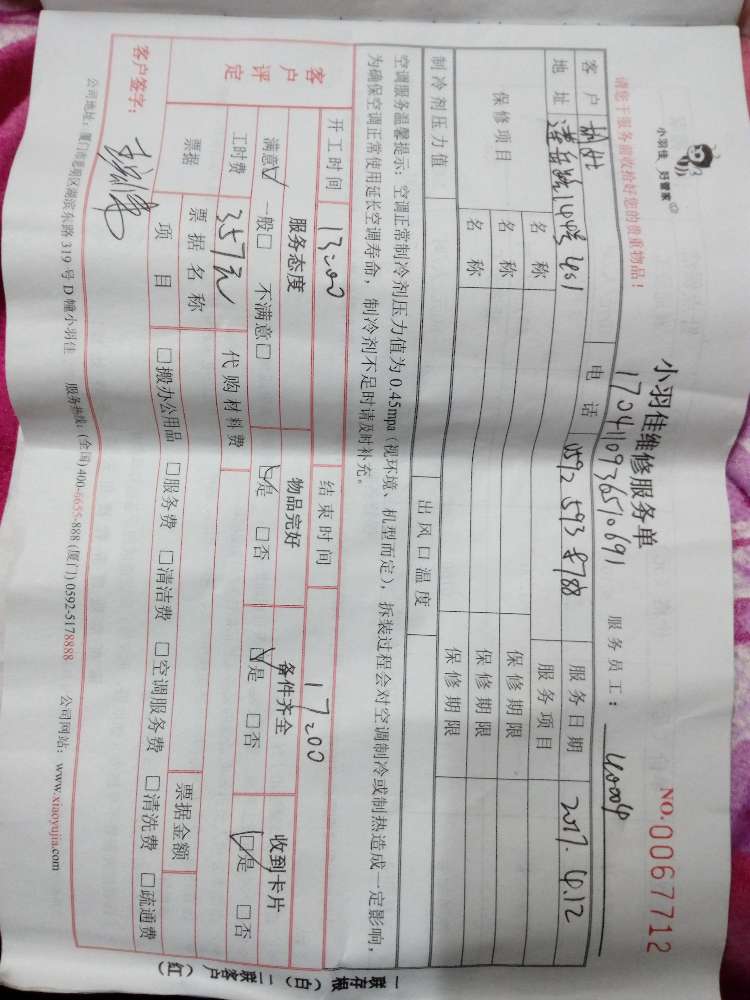 小羽佳 好管家
小羽佳维修服务单
NO.0067712
1704110936510691
请您于服务前收拾好您的贵重物品！
服务员工：
客户 电话 0592 5938788 服务日期 2017.4.12
地址 莲岳路140号401 服务项目
保修项目 名称 保修期限
名称 保修期限
名称 保修期限
制冷剂压力值 出风口温度
空调服务温馨提示：空调正常制冷剂压力值为0.45mpa（视环境、机型而定），拆装过程会对空调制冷或制热造成一定影响，
为确保空调正常使用延长空调寿命，制冷剂不足时请及时补充。
开工时间 13:00 结束时间 17:00
客户评定 服务态度 物品完好 备件齐全 收到卡片
满意☑ 一般□ 不满意□ ☑是 □否 ☑是 □否 ☑是 □否
工时费 357元 代购材料费
票据 票据名称 票据金额
项目 □搬办公用品 □服务费 □清洁费 □空调服务费 □清洗费 □疏通费
客户签字：
公司地址：厦门市思明区湖滨东路319号D幢小羽佳 服务热线：(全国)400-6655-888 (厦门)0592-5178888 公司网站：www.xiaoyujia.com
一联存根（白）二联客户（红）